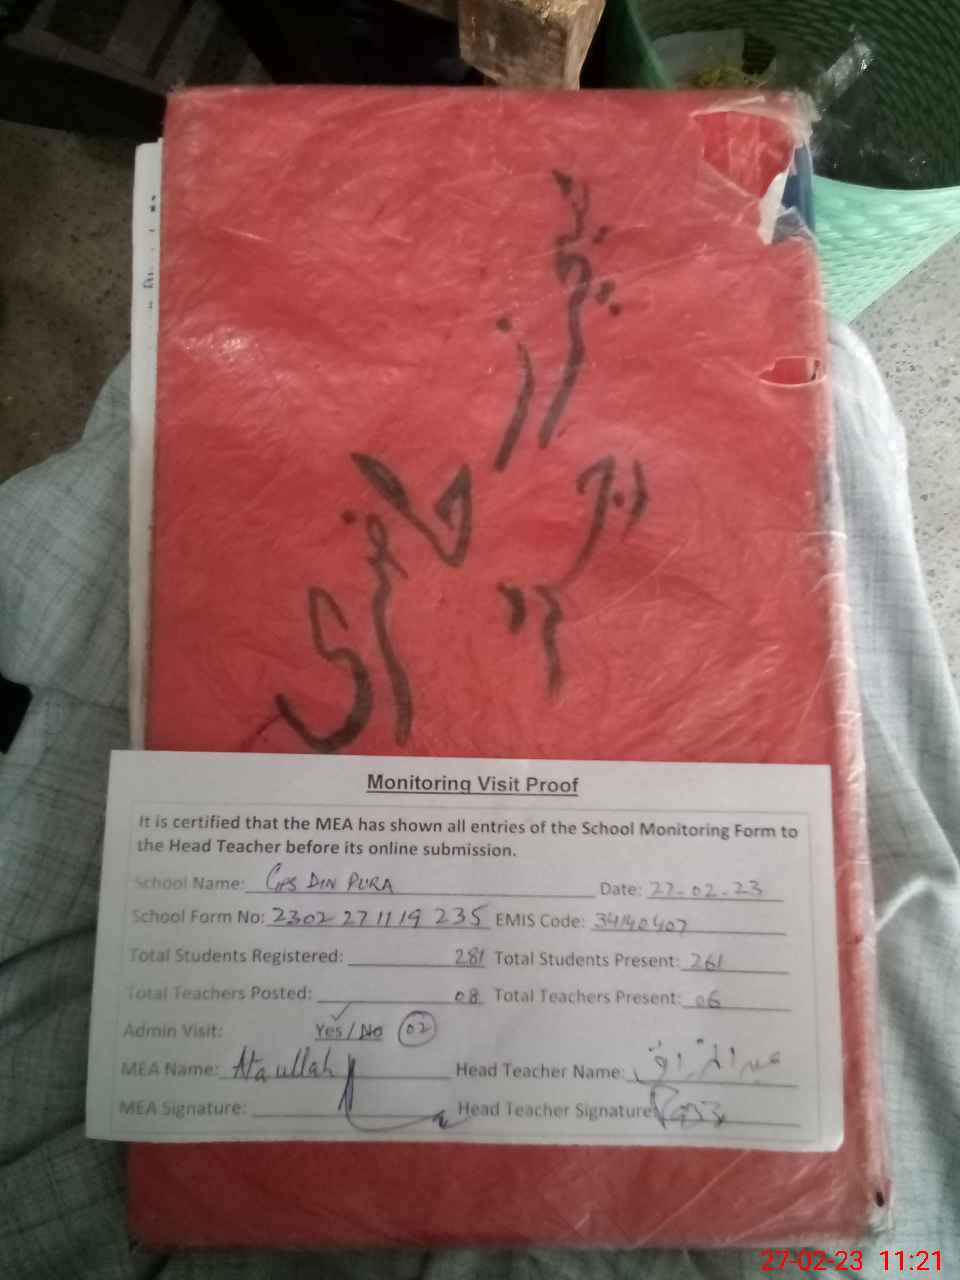 ٹیچرز
حاضری
Monitoring Visit Proof
It is certified that the MEA has shown all entries of the School Monitoring Form to
the Head Teacher before its online submission.
School Name: GPS DIN PURA Date: 27-02-23
School Form No: 2302 27 11 19 235 EMIS Code: 34140407
Total Students Registered: 281 Total Students Present: 261
Total Teachers Posted: 08 Total Teachers Present: 06
Admin Visit: Yes / No 02
MEA Name: Ata ullah Head Teacher Name: عبدالرزاق
MEA Signature: Head Teacher Signature:
27-02-23 11:21